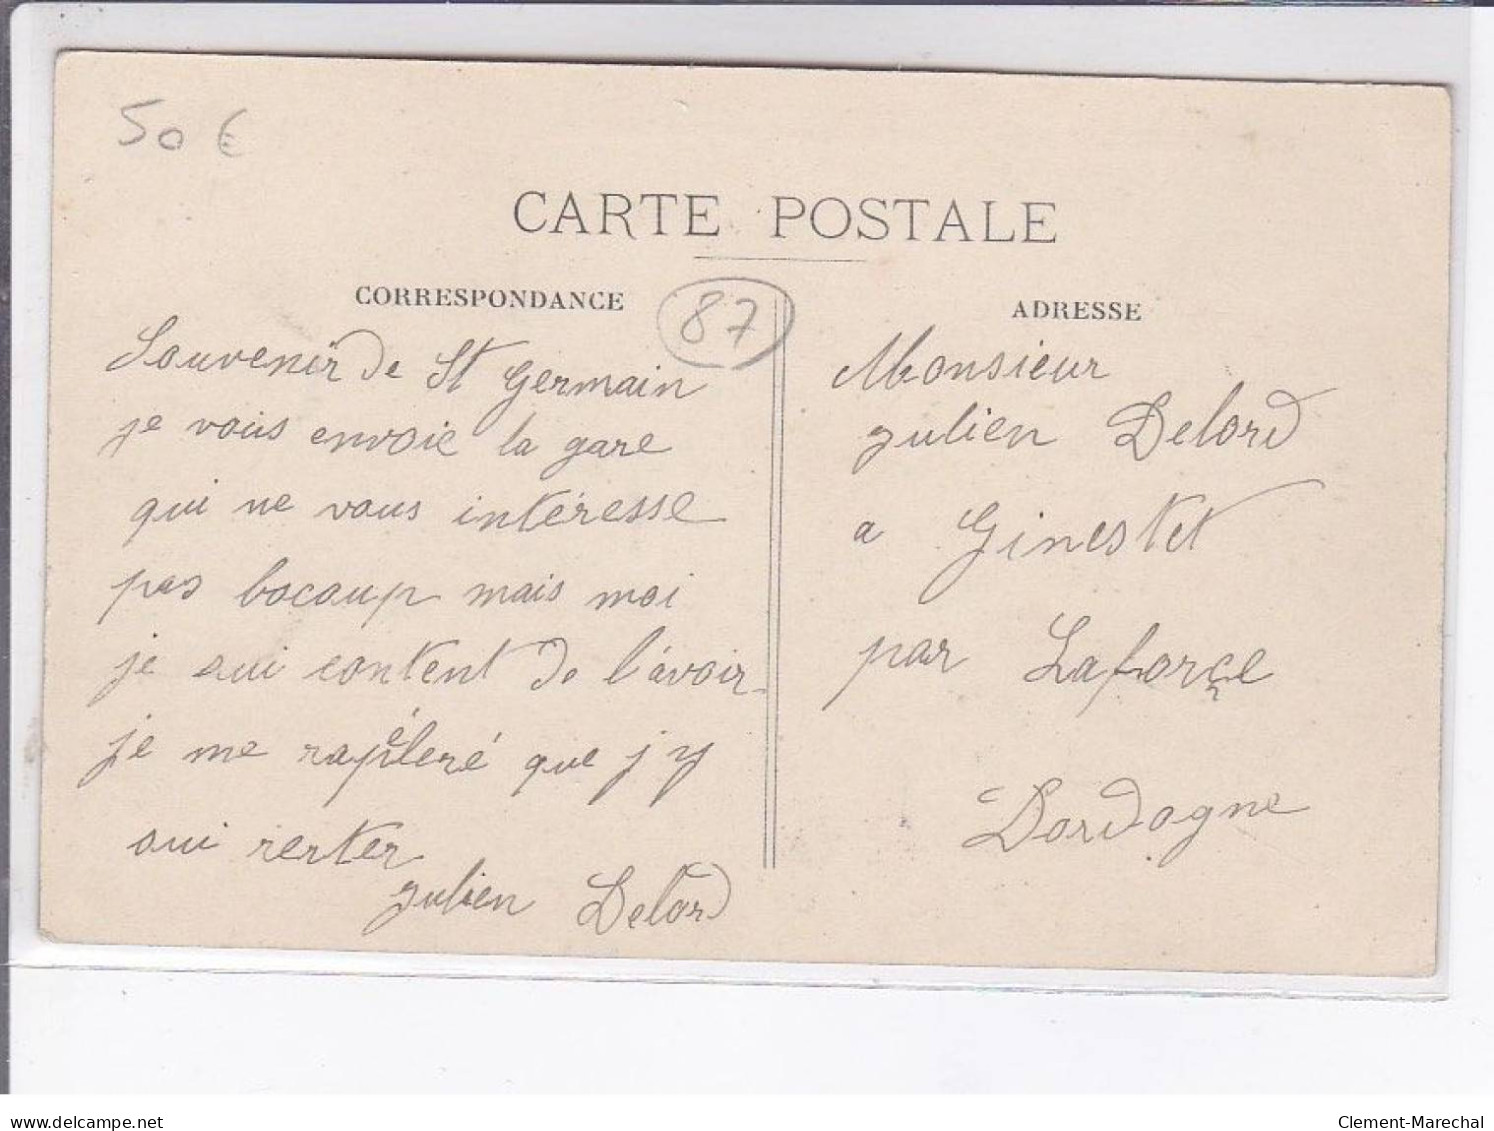 50 €
CARTE POSTALE
CORRESPONDANCE
87
ADRESSE
Souvenir de St Germain
je vous envoie la gare
qui ne vous intéresse
pas bocoup mais moi
je sui content de l'avoir
je me rapèleré que j'y
sui rester
Julien Delord
Monsieur
Julien Delord
a Ginestet
par Laforçe
Dordogne
delcampe.net
Clement-Marechal